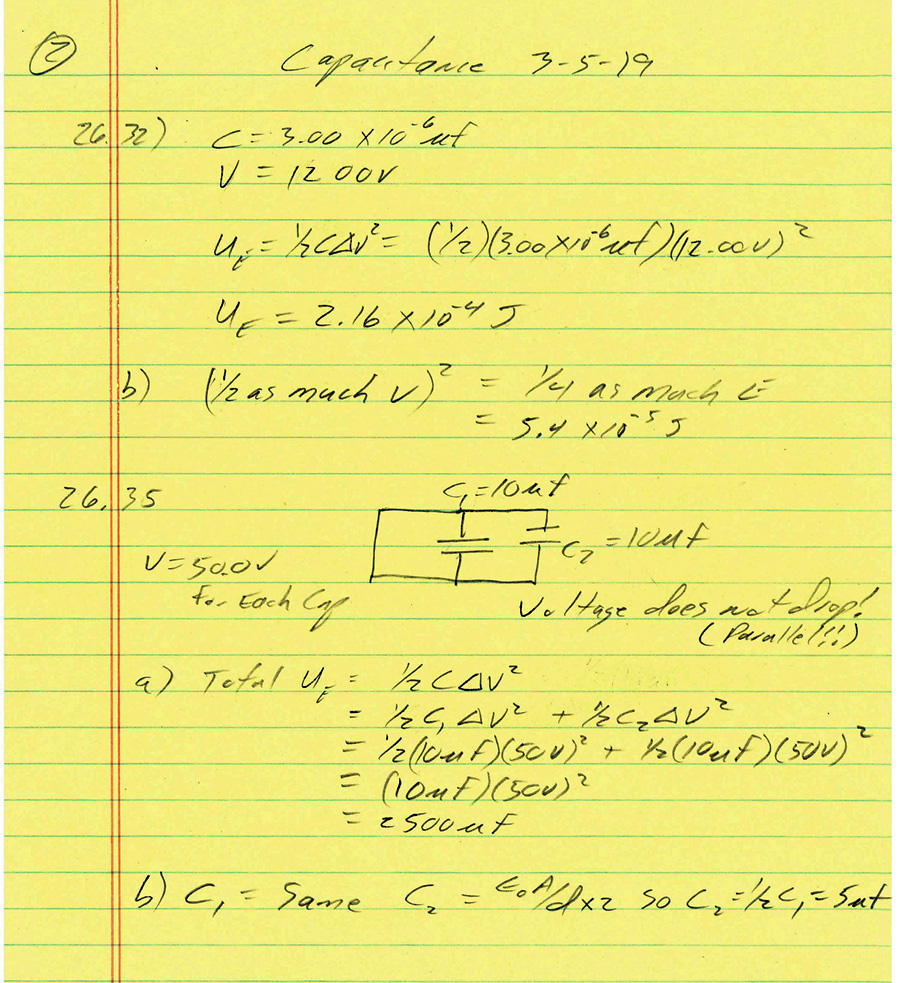 ②
Capacitance 3-5-19
26.32) C = 3.00 ×10⁻⁶ uf
V = 12 00V
U_E = ½CΔV² = (½)(3.00×10⁻⁶ uf)(12.00V)²
U_E = 2.16 ×10⁻⁴ J
b) (½ as much V)² = ¼ as much E
= 5.4 ×10⁻⁵ J
26.35
C₁ = 10uf
C₂ = 10uF
V = 50.0V
For Each Cap
Voltage does not drop!
(Parallel!!)
a) Total U_E = ½ C ΔV²
= ½ C₁ ΔV² + ½ C₂ ΔV²
= ½(10uF)(50V)² + ½(10uF)(50V)²
= (10uF)(50V)²
= 2500uF
b) C₁ = Same C₂ = ε₀A/d×2 so C₂ = ½C₁ = 5uf